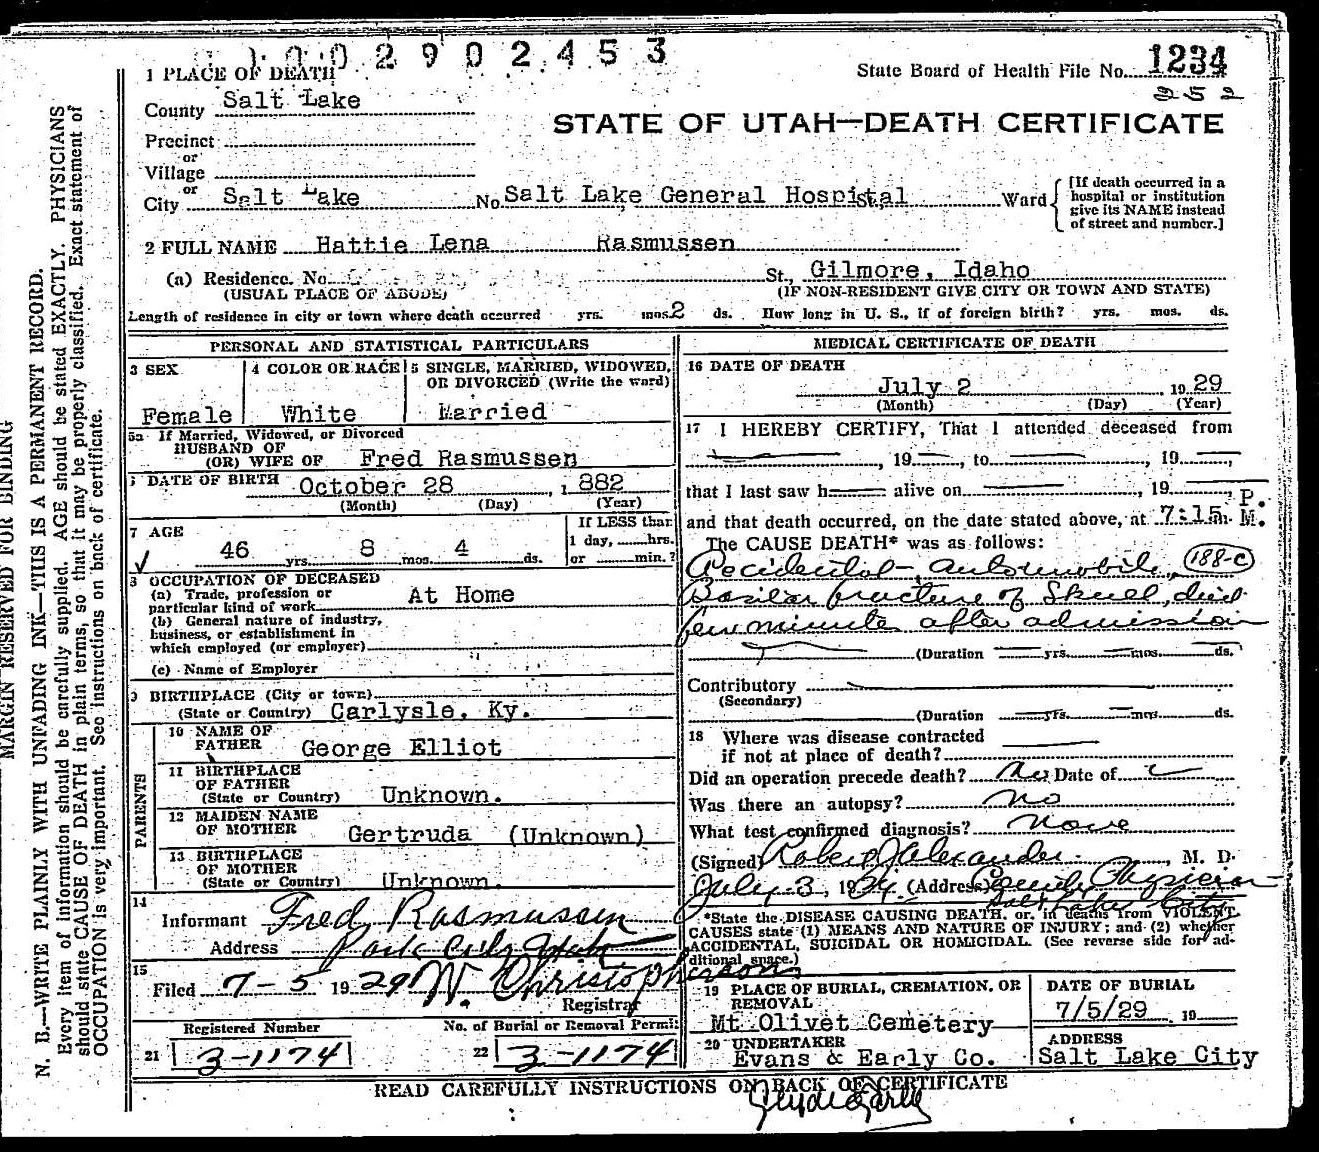 1002902453
1 PLACE OF DEATH
State Board of Health File No. 1234
352
County Salt Lake
STATE OF UTAH—DEATH CERTIFICATE
Precinct
or
Village
or
City Salt Lake No Salt Lake General Hospital Ward
[If death occurred in a
hospital or institution
give its NAME instead
of street and number.]
2 FULL NAME Hattie Lena Rasmussen
(a) Residence. No. St., Gilmore, Idaho
(USUAL PLACE OF ABODE) (IF NON-RESIDENT GIVE CITY OR TOWN AND STATE)
Length of residence in city or town where death occurred yrs. mos. 2 ds. How long in U. S., if of foreign birth? yrs. mos. ds.
PERSONAL AND STATISTICAL PARTICULARS
3 SEX 4 COLOR OR RACE 5 SINGLE, MARRIED, WIDOWED,
OR DIVORCED (Write the word)
Female White Married
5a If Married, Widowed, or Divorced
HUSBAND OF
(OR) WIFE OF Fred Rasmussen
DATE OF BIRTH October 28, 1882
(Month) (Day) (Year)
7 AGE If LESS than
1 day, hrs.
46 yrs. 8 mos. 4 ds. or min.?
OCCUPATION OF DECEASED
(a) Trade, profession or
particular kind of work At Home
(b) General nature of industry,
business, or establishment in
which employed (or employer)
(c) Name of Employer
9 BIRTHPLACE (City or town)
(State or Country) Carlysle, Ky.
PARENTS
10 NAME OF
FATHER George Elliot
11 BIRTHPLACE
OF FATHER
(State or Country) Unknown.
12 MAIDEN NAME
OF MOTHER Gertruda (Unknown)
13 BIRTHPLACE
OF MOTHER
(State or Country) Unknown.
14
Informant Fred Rasmussen
Address Park City Utah
15
Filed 7-5 1929 W. Christopherson
Registrar
Registered Number No. of Burial or Removal Permit
21 3-1174 22 3-1174
MEDICAL CERTIFICATE OF DEATH
16 DATE OF DEATH
July 2 1929
(Month) (Day) (Year)
17 I HEREBY CERTIFY, That I attended deceased from
, 19 , to , 19 ,
that I last saw h alive on , 19 ,
and that death occurred, on the date stated above, at 7:15 P. M.
The CAUSE DEATH* was as follows:
Accidental - Automobile, 188-c
Basilar fracture of Skull, died
few minutes after admission
(Duration yrs. mos. ds.
Contributory
(Secondary)
(Duration yrs. mos. ds.
18 Where was disease contracted
if not at place of death?
Did an operation precede death? No Date of
Was there an autopsy? No
What test confirmed diagnosis? None
(Signed) Robert J Alexander, M. D.
July 3, 1929 (Address) County Physician
Salt Lake City
*State the DISEASE CAUSING DEATH, or, in deaths from VIOLENT
CAUSES state (1) MEANS AND NATURE OF INJURY; and (2) whether
ACCIDENTAL, SUICIDAL OR HOMICIDAL. (See reverse side for ad-
ditional space.)
19 PLACE OF BURIAL, CREMATION, OR
REMOVAL
Mt Olivet Cemetery
DATE OF BURIAL
7/5/29 19
20 UNDERTAKER
Evans & Early Co.
ADDRESS
Salt Lake City
READ CAREFULLY INSTRUCTIONS ON BACK OF CERTIFICATE
Clyde Early
MARGIN RESERVED FOR BINDING
N. B.—WRITE PLAINLY WITH UNFADING INK—THIS IS A PERMANENT RECORD.
Every item of information should be carefully supplied. AGE should be stated EXACTLY. PHYSICIANS
should state CAUSE OF DEATH in plain terms, so that it may be properly classified. Exact statement of
OCCUPATION is very important. See instructions on back of certificate.